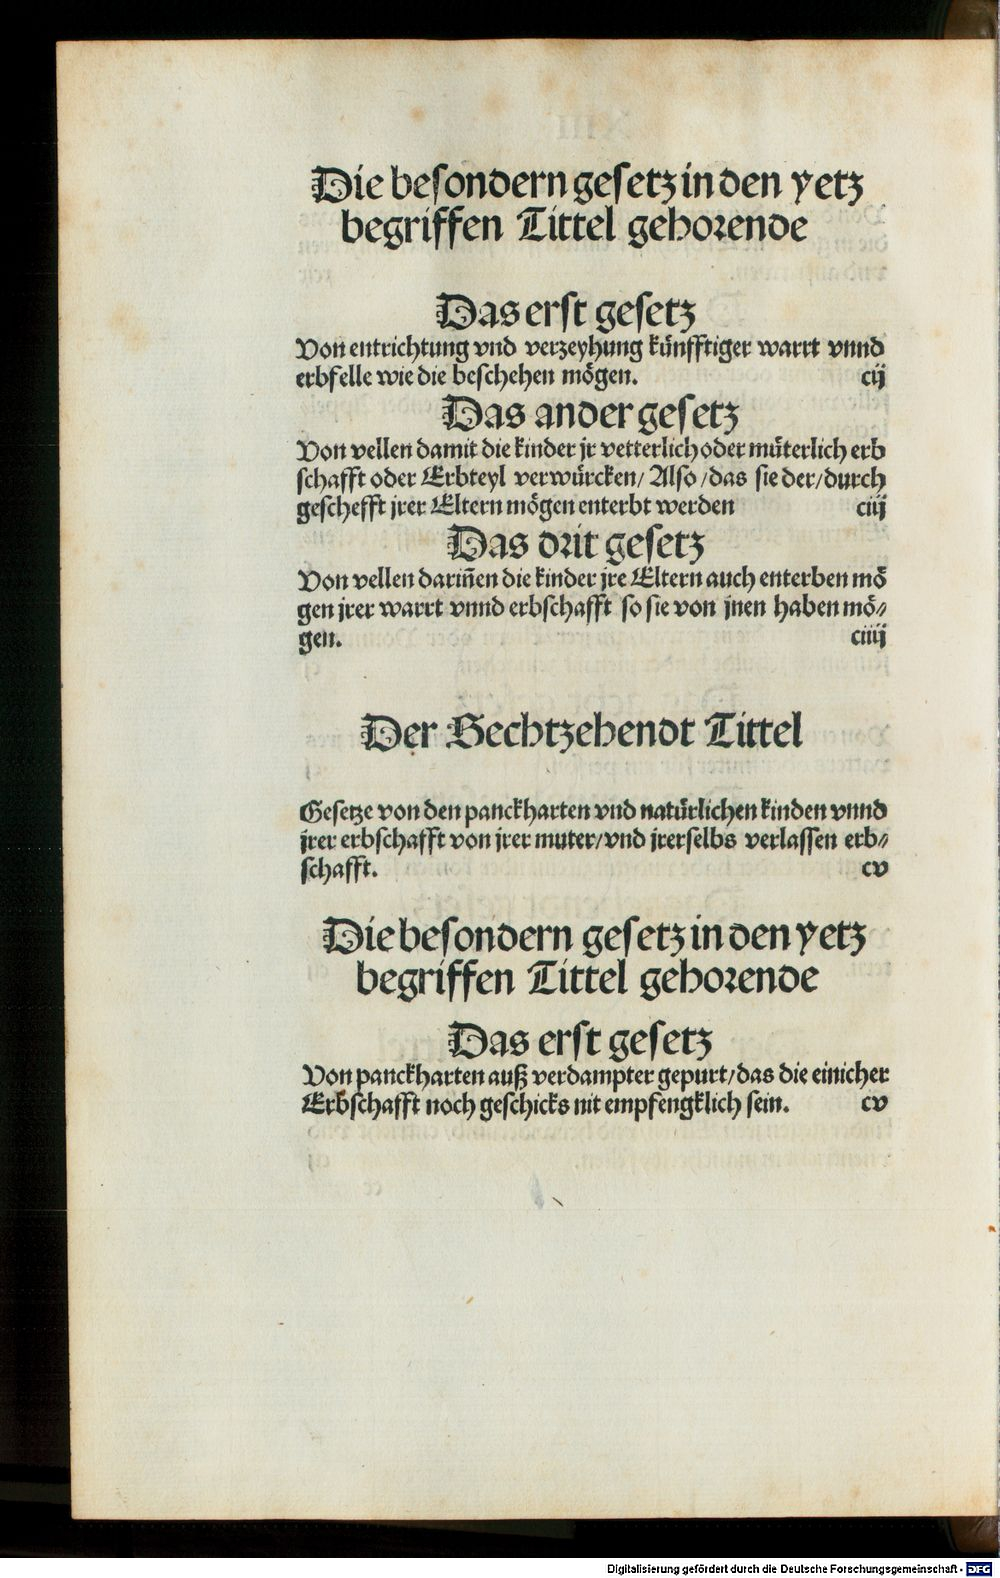 Die besondern gesetz in den yetz
begriffen Tittel gehorende
Das erst gesetz
Von entrichtung vnd verzeyhung künfftiger warrt vnnd
erbfelle wie die beschehen mögen. cij
Das ander gesetz
Von vellen damit die kinder jr vetterlich oder müterlich erb
schafft oder Erbteyl verwürcken/ Also/das sie der/durch
geschefft jrer Eltern mögen enterbt werden ciij
Das drit gesetz
Von vellen dariñen die kinder jre Eltern auch enterben mö
gen jrer warrt vnnd erbschafft so sie von jnen haben mö⸗
gen. ciiij
Der Sechtzehendt Tittel
Gesetze von den panckharten vnd natürlichen kinden vnnd
jrer erbschafft von jrer muter/vnd jrerselbs verlassen erb⸗
schafft. cv
Die besondern gesetz in den yetz
begriffen Tittel gehorende
Das erst gesetz
Von panckharten auß verdampter gepurt/das die einicher
Erbschafft noch geschicks nit empfengklich sein. cv
Digitalisierung gefördert durch die Deutsche Forschungsgemeinschaft - DFG